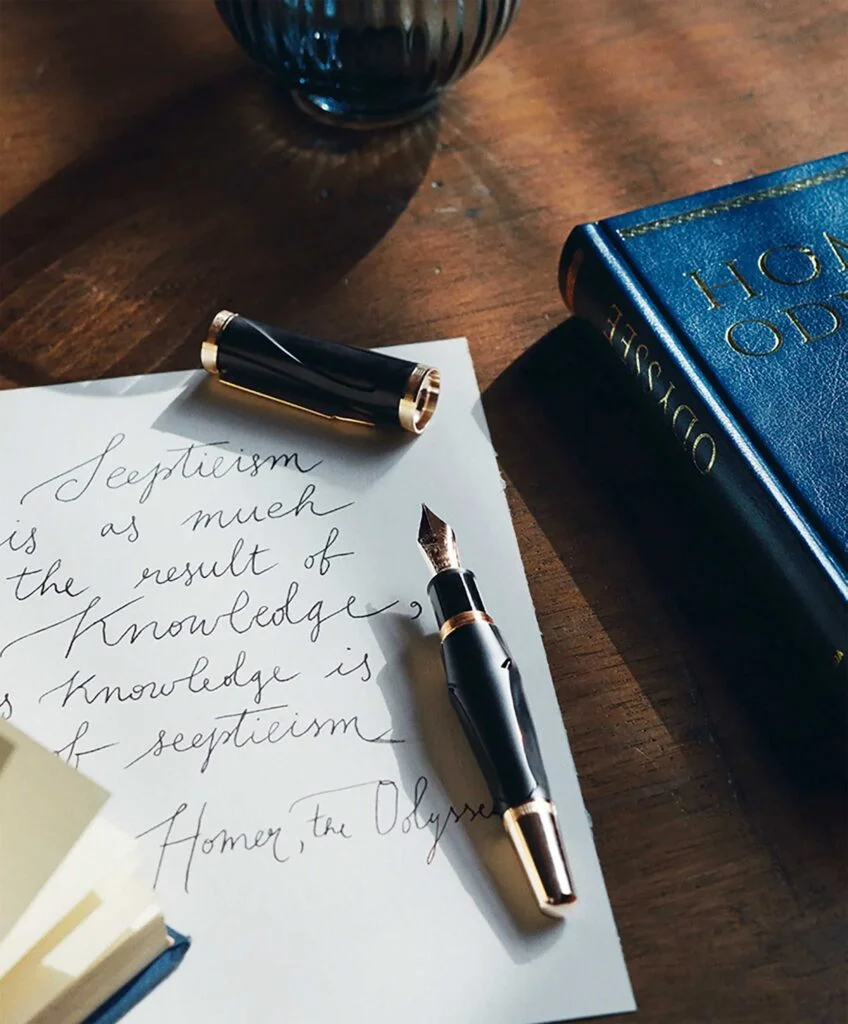 Scepticism
is as much
the result of
Knowledge,
s Knowledge is
of scepticism
Homer, the Odyssey
HOM
ODY
ODYSSEE